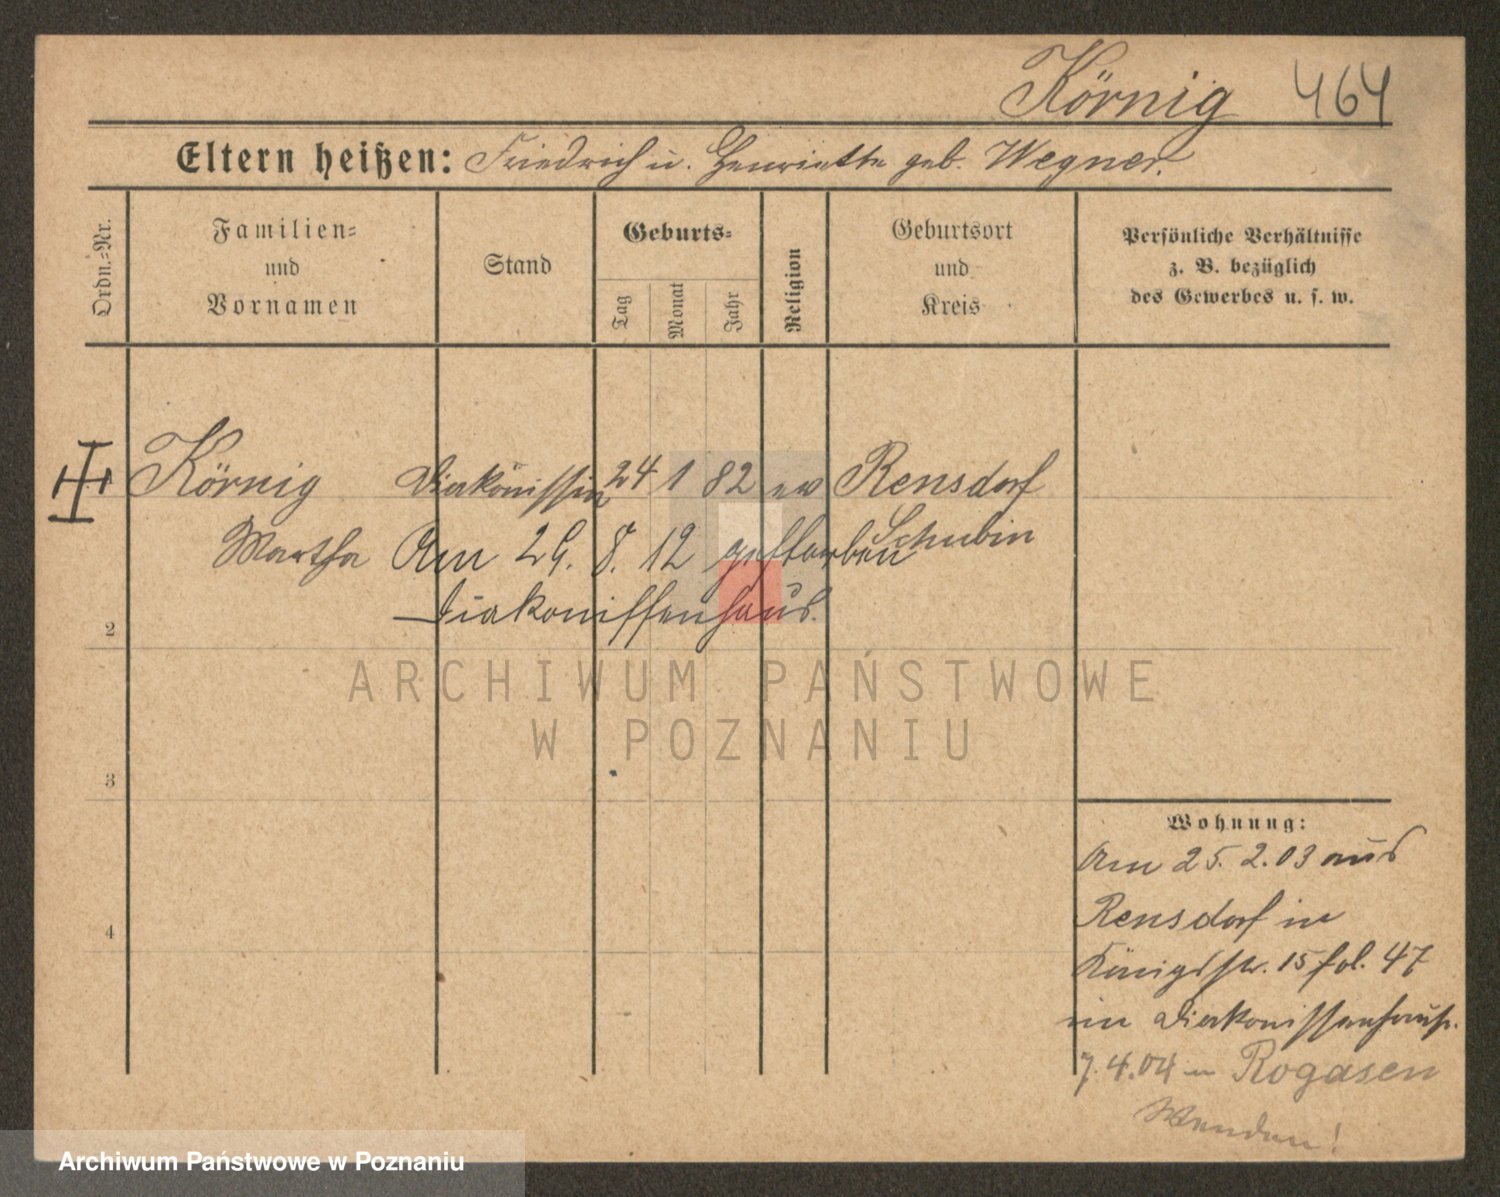 Körnig 464
Eltern heißen: Friedrich u. Henriette geb. Wegner.
Ordn.-Nr.
Familien-
und
Vornamen
Stand
Geburts-
Tag
Monat
Jahr
Religion
Geburtsort
und
Kreis
Persönliche Verhältnisse
z. B. bezüglich
des Gewerbes u. s. w.
Körnig Diakonissin 24 1 82 ev Rensdorf
Schubin
Martha Am 29. 8. 12 gestorben
Diakonissenhaus.
2
3
4
ARCHIWUM PAŃSTWOWE
W POZNANIU
Wohnung:
Am 25. 2. 03 aus
Rensdorf in
Königstr. 15 fol. 47
im Diakonissenhause.
7. 4. 04 n Rogasen
Wenden!
Archiwum Państwowe w Poznaniu